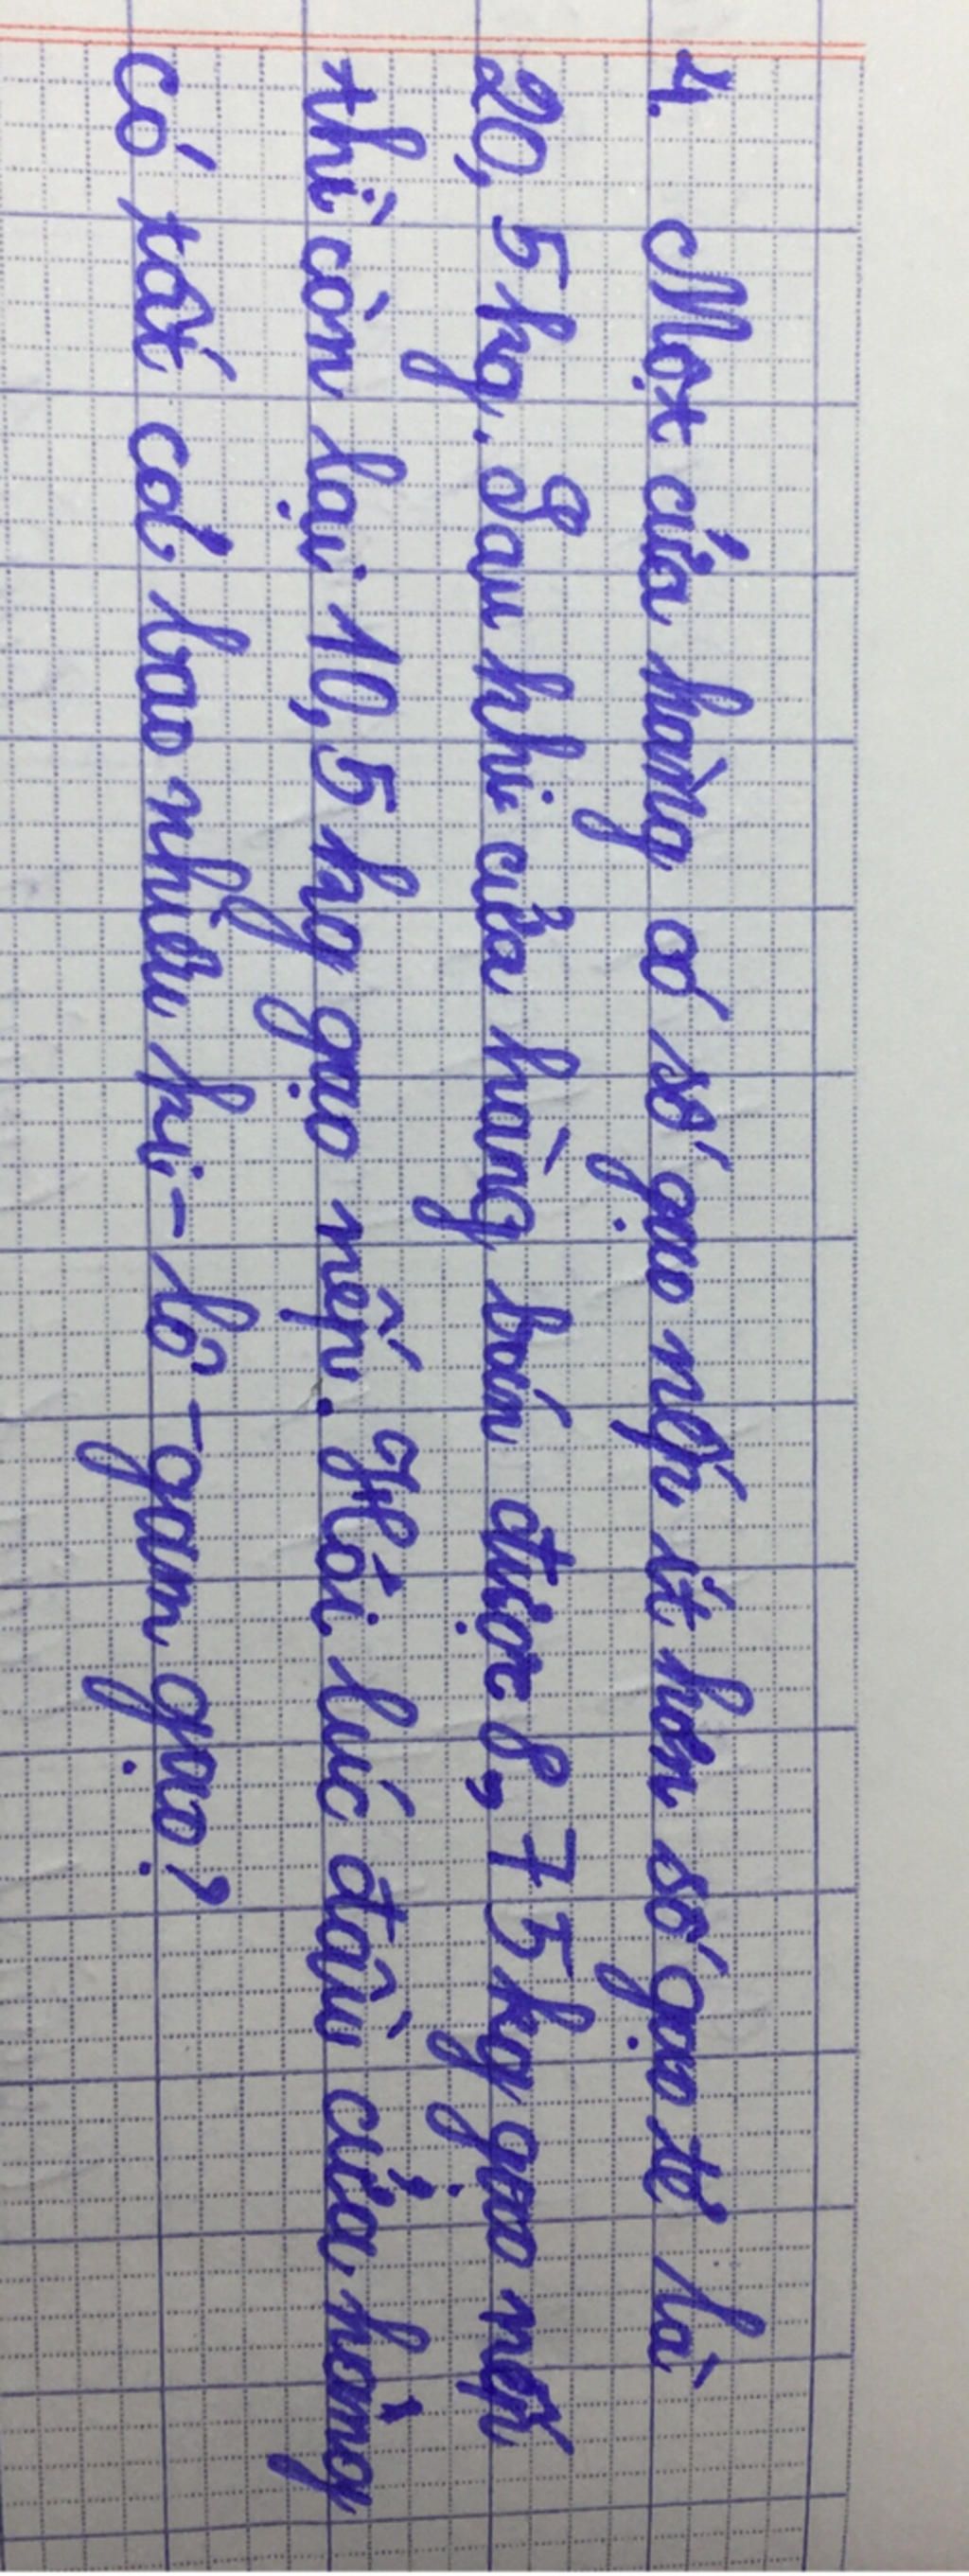 4. Một cửa hàng có số gạo nếp ít hơn số gạo tẻ là
20,5kg. Sau khi cửa hàng bán được 8,75kg gạo nếp
thì còn lại 10,5kg gạo nếp. Hỏi lúc đầu cửa hàng
có tất cả bao nhiêu ki-lô-gam gạo?